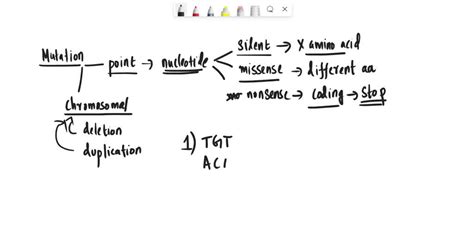 Mutation — point → nucleotide
silent → X amino acid
missense → different aa
nonsense → coding → stop
chromosomal
deletion
duplication
1) TGT
AC